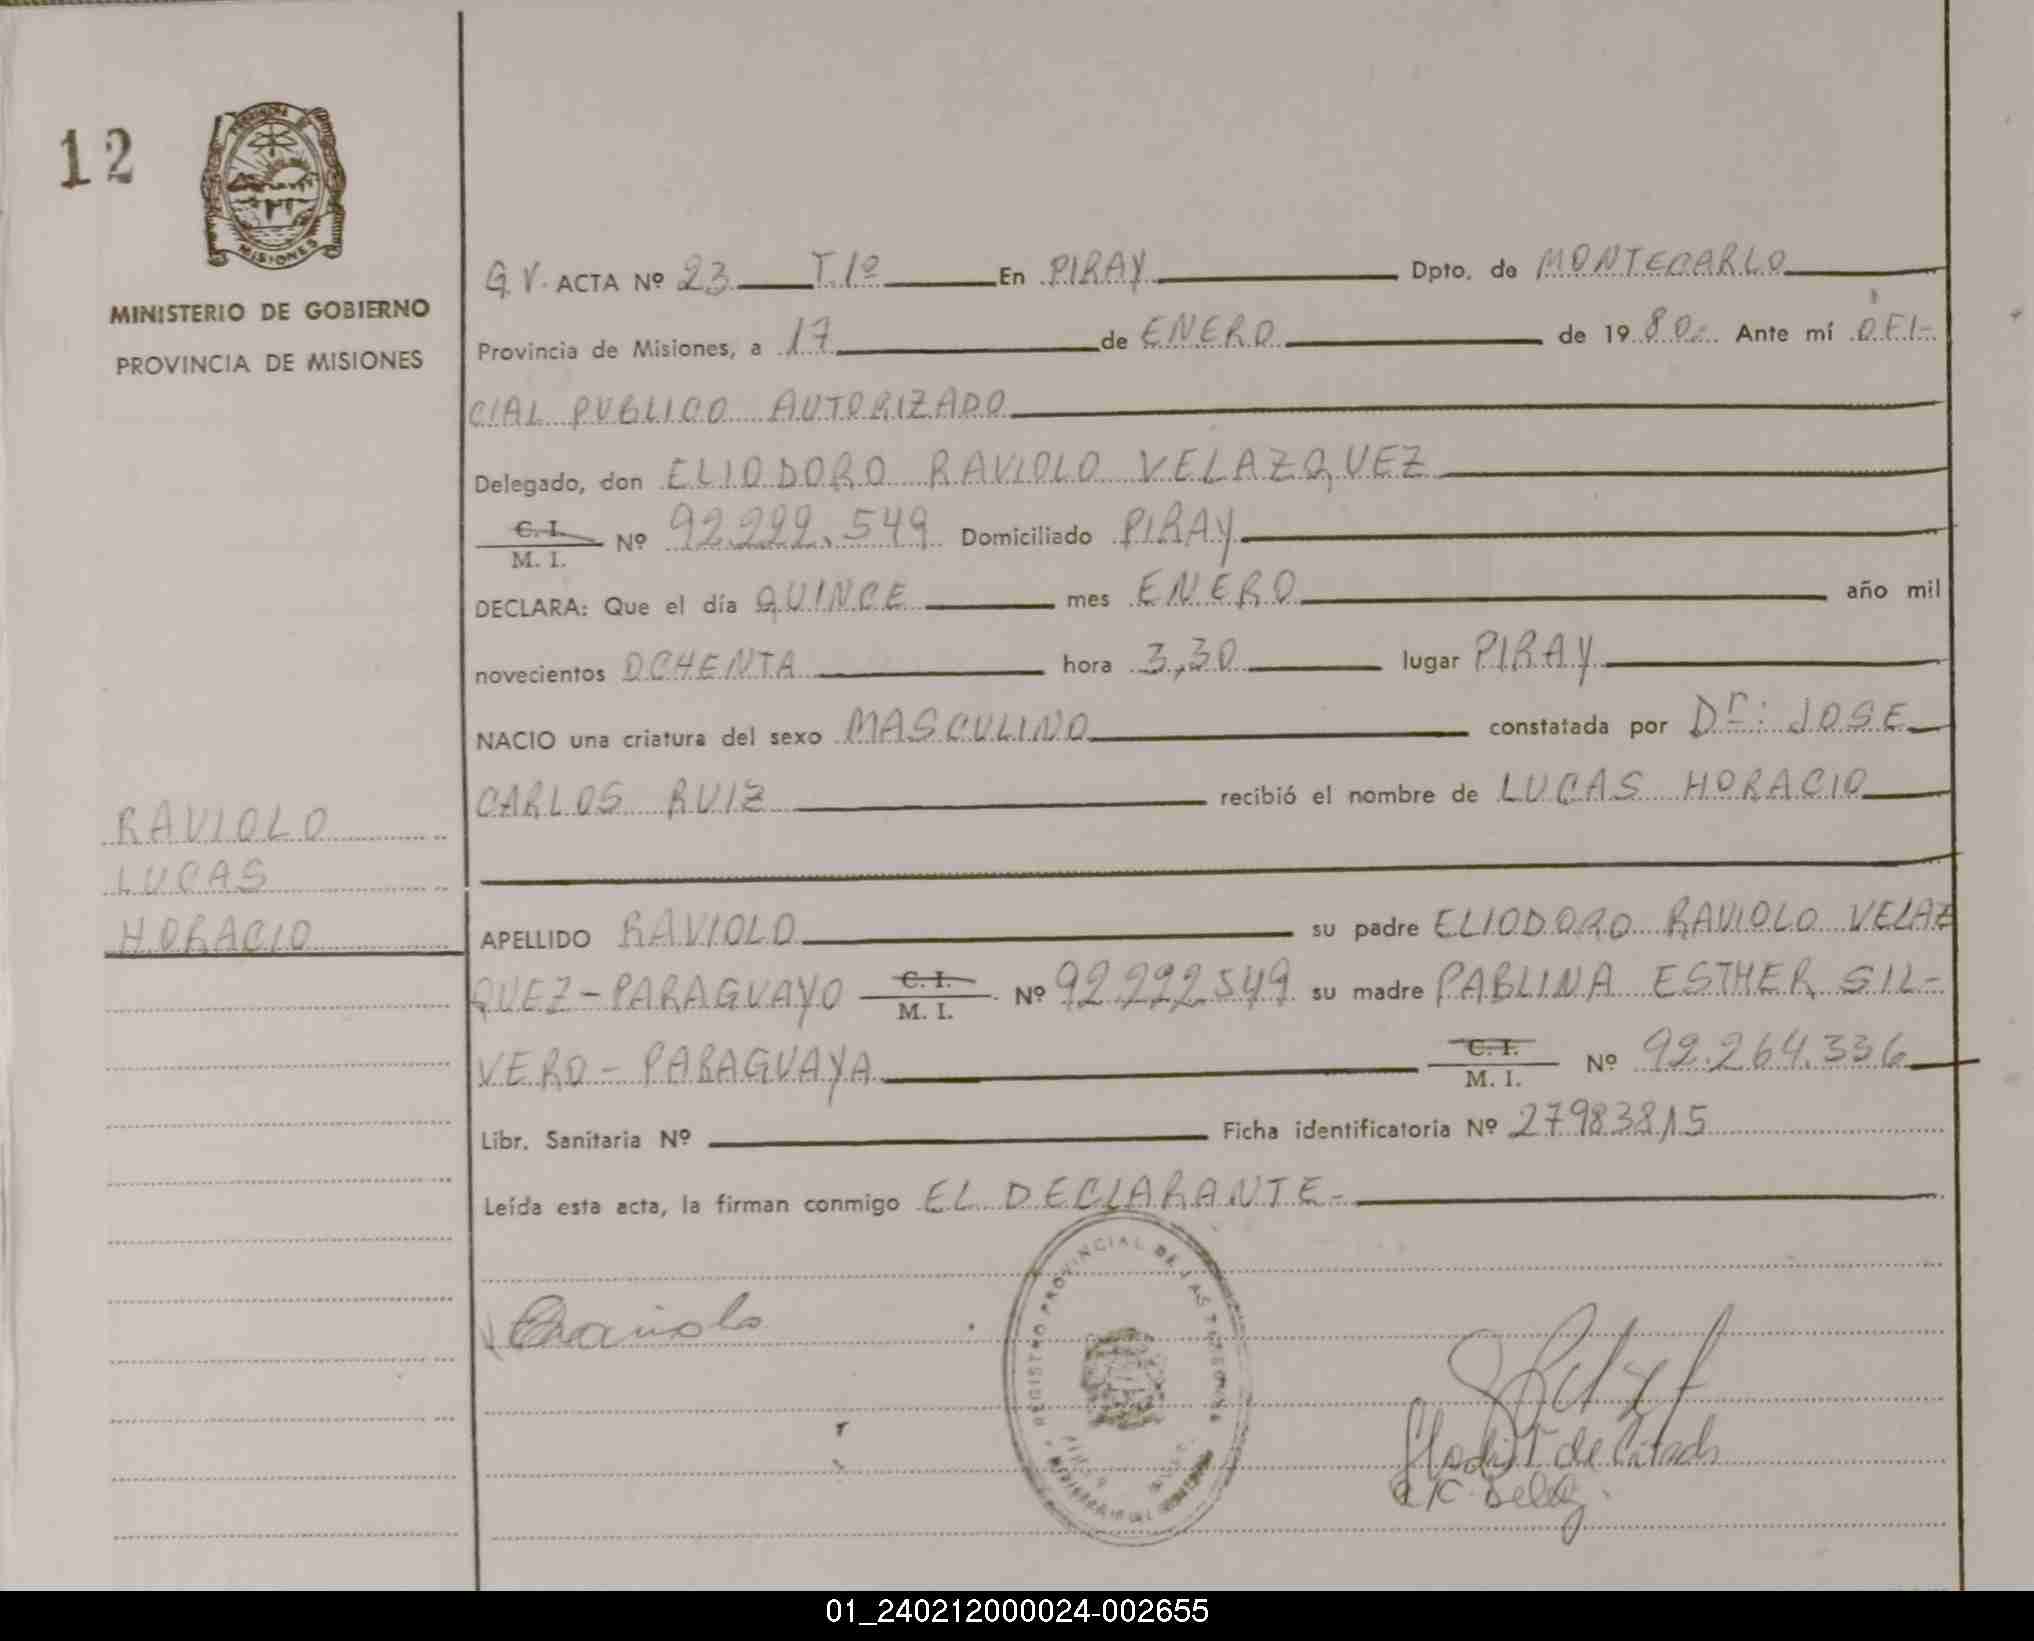 12
PROVINCIA DE
MISIONES
MINISTERIO DE GOBIERNO
PROVINCIA DE MISIONES
RAVIOLO
LUCAS
HORACIO
G.V. ACTA Nº 23 T.1º En PIRAY Dpto. de MONTECARLO
Provincia de Misiones, a 17 de ENERO de 1980.- Ante mí OFI-
CIAL PUBLICO AUTORIZADO
Delegado, don ELIODORO RAVIOLO VELAZQUEZ
C. I.
M. I. Nº 92.292.549 Domiciliado PIRAY
DECLARA: Que el día QUINCE mes ENERO año mil
novecientos OCHENTA hora 3,30 lugar PIRAY
NACIO una criatura del sexo MASCULINO constatada por Dr: JOSE
CARLOS RUIZ recibió el nombre de LUCAS HORACIO
APELLIDO RAVIOLO su padre ELIODORO RAVIOLO VELAZ
QUEZ-PARAGUAYO C. I. M. I. Nº 92.292.549 su madre PABLINA ESTHER SIL-
VERO - PARAGUAYA C. I. M. I. Nº 92.264.336
Libr. Sanitaria Nº Ficha identificatoria Nº 27983815
Leída esta acta, la firman conmigo EL DECLARANTE-
REGISTRO PROVINCIAL DE LAS PERSONAS
01_240212000024-002655